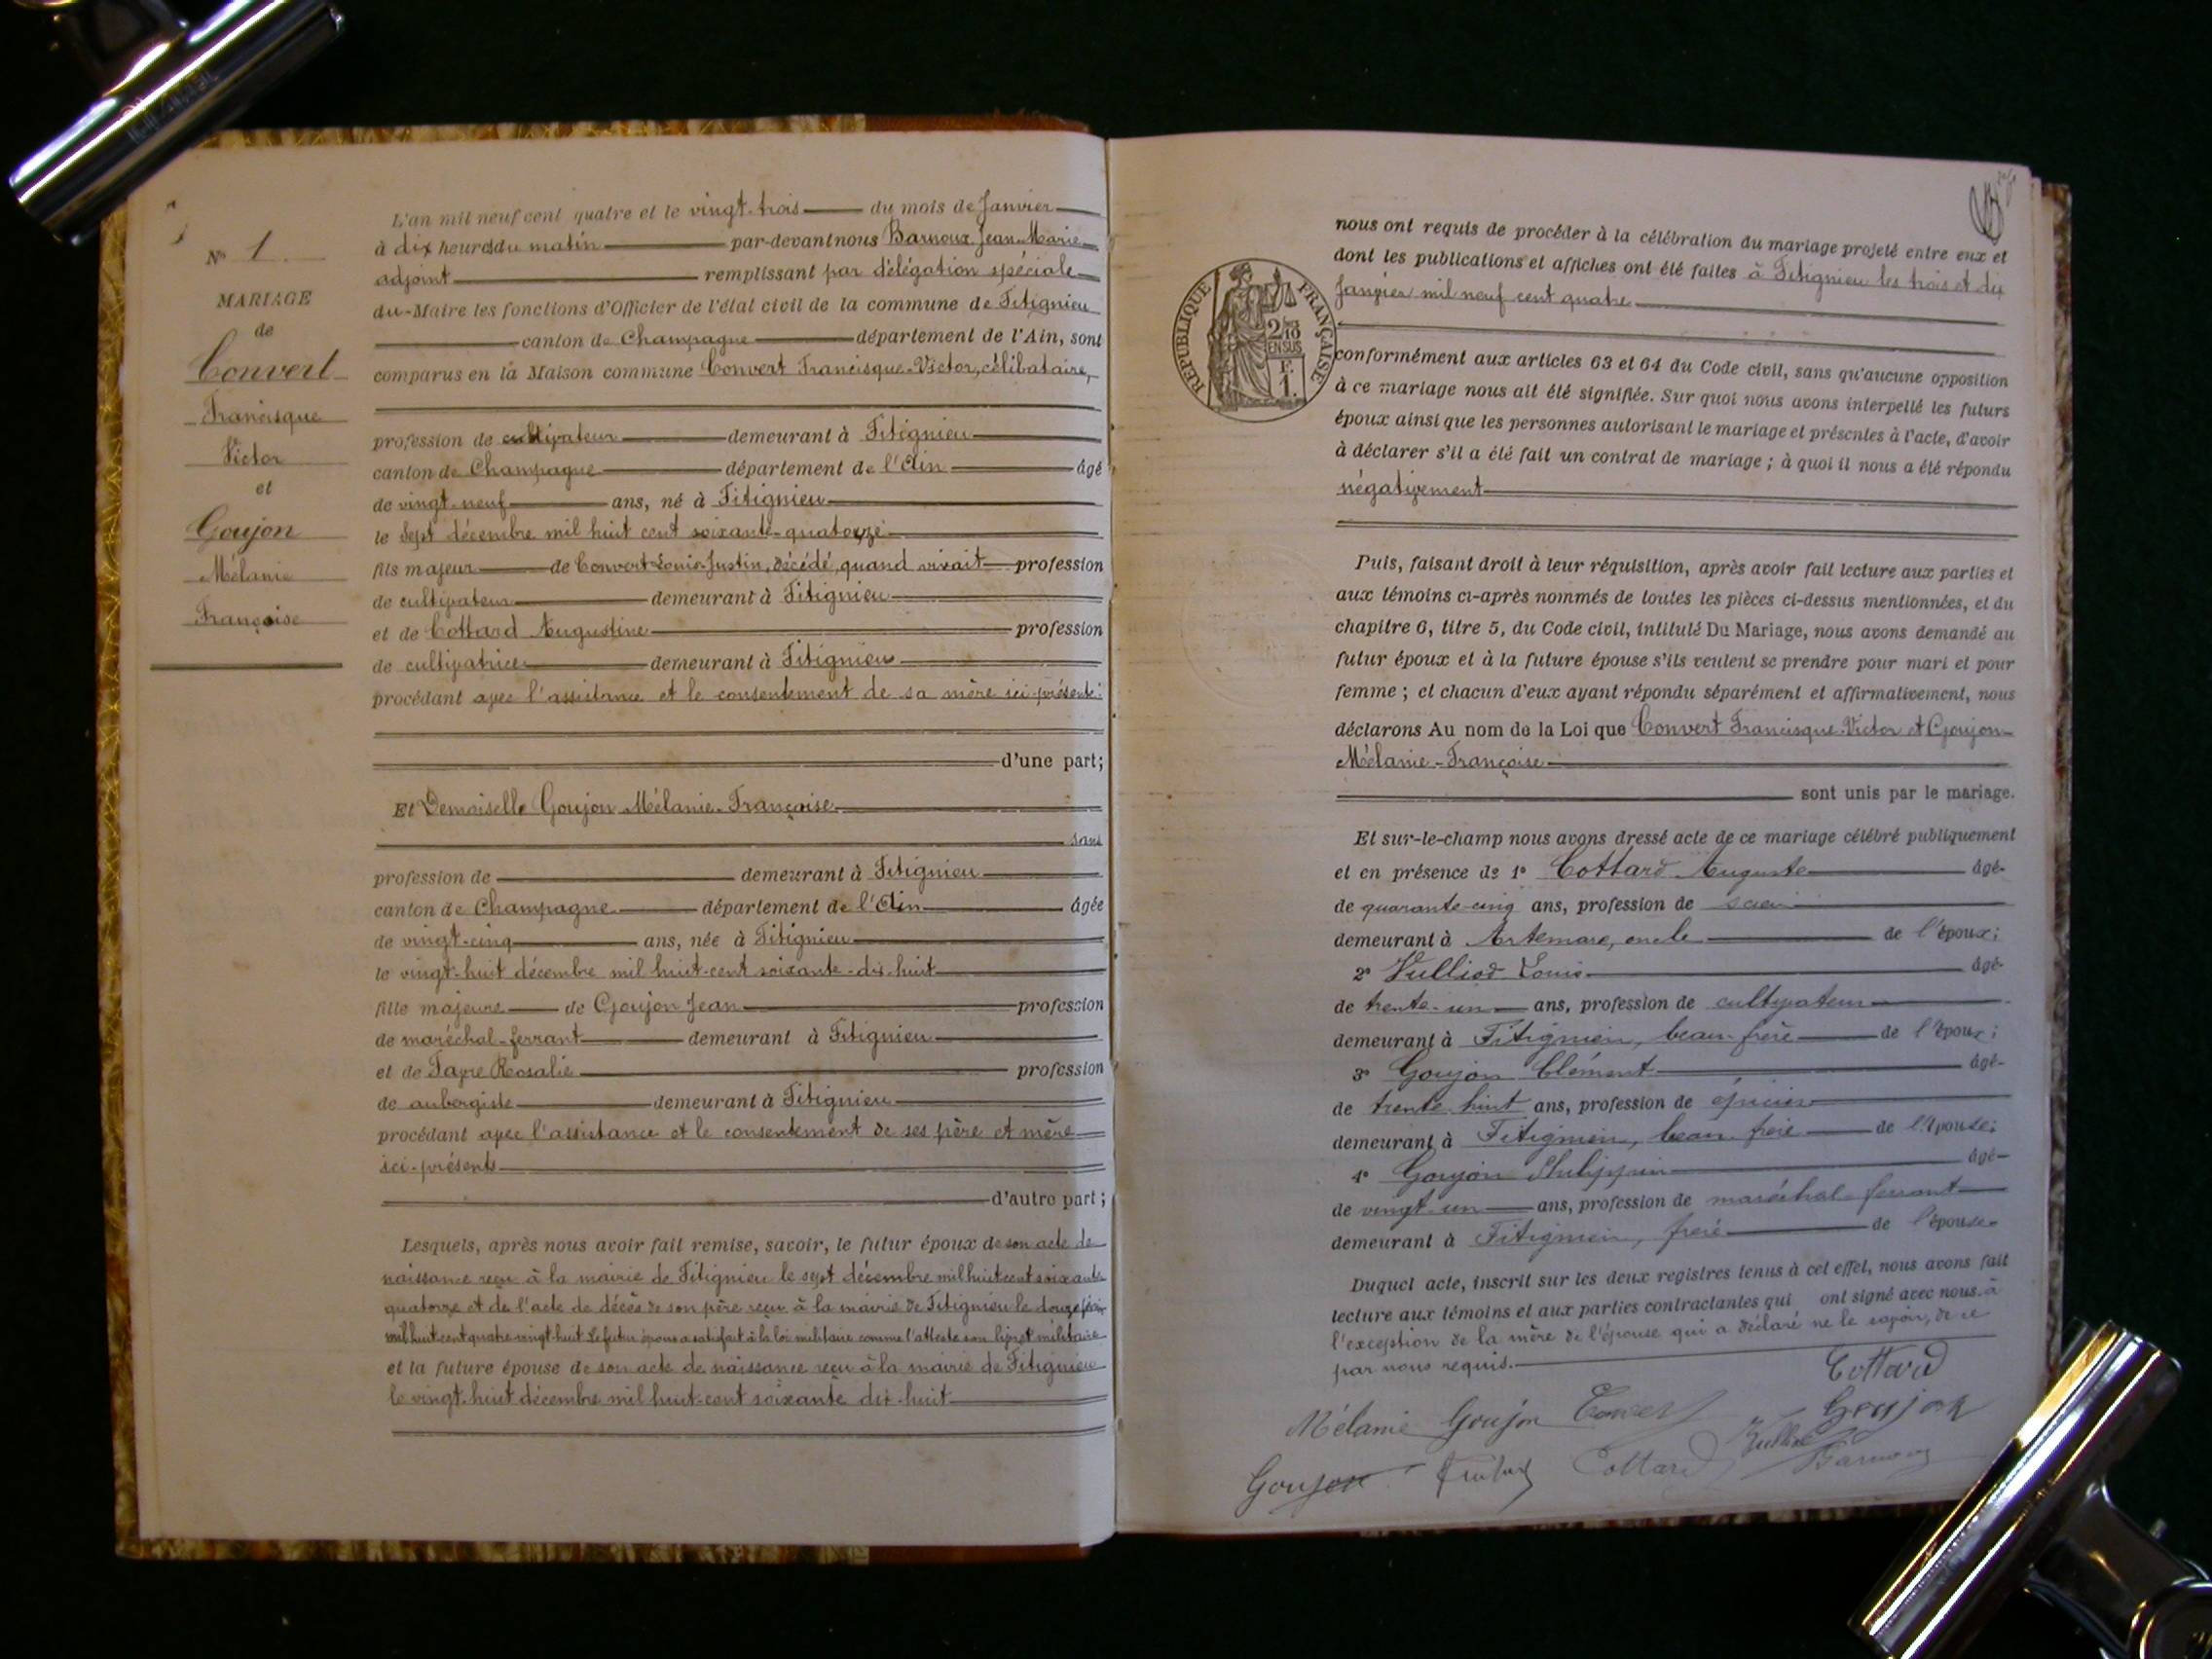 L'an mil neuf cent quatre et le vingt-trois du mois de Janvier
à dix heures du matin par-devant nous Barnoux Jean-Marie
adjoint remplissant par délégation spéciale
du Maire les fonctions d'Officier de l'état civil de la commune de Fitignieu
canton de Champagne département de l'Ain, sont
comparus en la Maison commune Convert Francisque-Victor, célibataire,
profession de cultivateur demeurant à Fitignieu
canton de Champagne département de l'Ain âgé
de vingt-neuf ans, né à Fitignieu
le sept décembre mil huit cent soixante-quatorze
fils majeur de Convert Louis-Justin, décédé, quand vivait profession
de cultivateur demeurant à Fitignieu
et de Cottard Augustine profession
de cultivatrice demeurant à Fitignieu
procédant avec l'assistance et le consentement de sa mère ici-présente;
d'une part;
Et Demoiselle Goujon Mélanie-Françoise
sans
profession de demeurant à Fitignieu
canton de Champagne département de l'Ain âgée
de vingt-cinq ans, née à Fitignieu
le vingt-huit décembre mil huit-cent soixante-dix-huit
fille majeure de Goujon Jean profession
de maréchal-ferrant demeurant à Fitignieu
et de Favre Rosalie profession
de aubergiste demeurant à Fitignieu
procédant avec l'assistance et le consentement de ses père et mère
ici-présents
d'autre part;
Lesquels, après nous avoir fait remise, savoir, le futur époux de son acte de
naissance reçu à la mairie de Fitignieu le sept décembre mil huit cent soixante
quatorze et de l'acte de décès de son père reçu à la mairie de Fitignieu le douze
mil huit cent quatre vingt-huit. Le futur époux a satisfait à la loi militaire comme l'atteste son livret militaire
et la future épouse de son acte de naissance reçu à la mairie de Fitignieu
le vingt-huit décembre mil huit-cent soixante dix-huit
N° 1
MARIAGE
de
Convert
Francisque
Victor
et
Goujon
Mélanie
Françoise
RÉPUBLIQUE FRANÇAISE
2/10
EN SUS
F.
1.
nous ont requis de procéder à la célébration du mariage projeté entre eux et
dont les publications et affiches ont été faites à Fitignieu les trois et dix
Janvier mil neuf cent quatre
conformément aux articles 63 et 64 du Code civil, sans qu'aucune opposition
à ce mariage nous ait été signifiée. Sur quoi nous avons interpellé les futurs
époux ainsi que les personnes autorisant le mariage et présentes à l'acte, d'avoir
à déclarer s'il a été fait un contrat de mariage; à quoi il nous a été répondu
négativement
Puis, faisant droit à leur réquisition, après avoir fait lecture aux parties et
aux témoins ci-après nommés de toutes les pièces ci-dessus mentionnées, et du
chapitre 6, titre 5, du Code civil, intitulé Du Mariage, nous avons demandé au
futur époux et à la future épouse s'ils veulent se prendre pour mari et pour
femme; et chacun d'eux ayant répondu séparément et affirmativement, nous
déclarons Au nom de la Loi que Convert Francisque-Victor et Goujon
Mélanie-Françoise
sont unis par le mariage.
Et sur-le-champ nous avons dressé acte de ce mariage célébré publiquement
et en présence de 1° Cottard Auguste âgé
de quarante-cinq ans, profession de
demeurant à Artemare, oncle de l'époux;
2° Vulliod Louis âgé
de trente-un ans, profession de cultivateur
demeurant à Fitignieu, beau-frère de l'époux;
3° Goujon Clément âgé
de trente-huit ans, profession de épicier
demeurant à Fitignieu, beau-frère de l'épouse;
4° Goujon Philippin âgé
de vingt-un ans, profession de maréchal-ferrant
demeurant à Fitignieu, frère de l'épouse
Duquel acte, inscrit sur les deux registres tenus à cet effet, nous avons fait
lecture aux témoins et aux parties contractantes qui ont signé avec nous à
l'exception de la mère de l'épouse qui a déclaré ne le savoir, de ce
par nous requis.
Cottard
Mélanie Goujon Convert Goujon
Vulliod
Goujon Cottard Barnoux